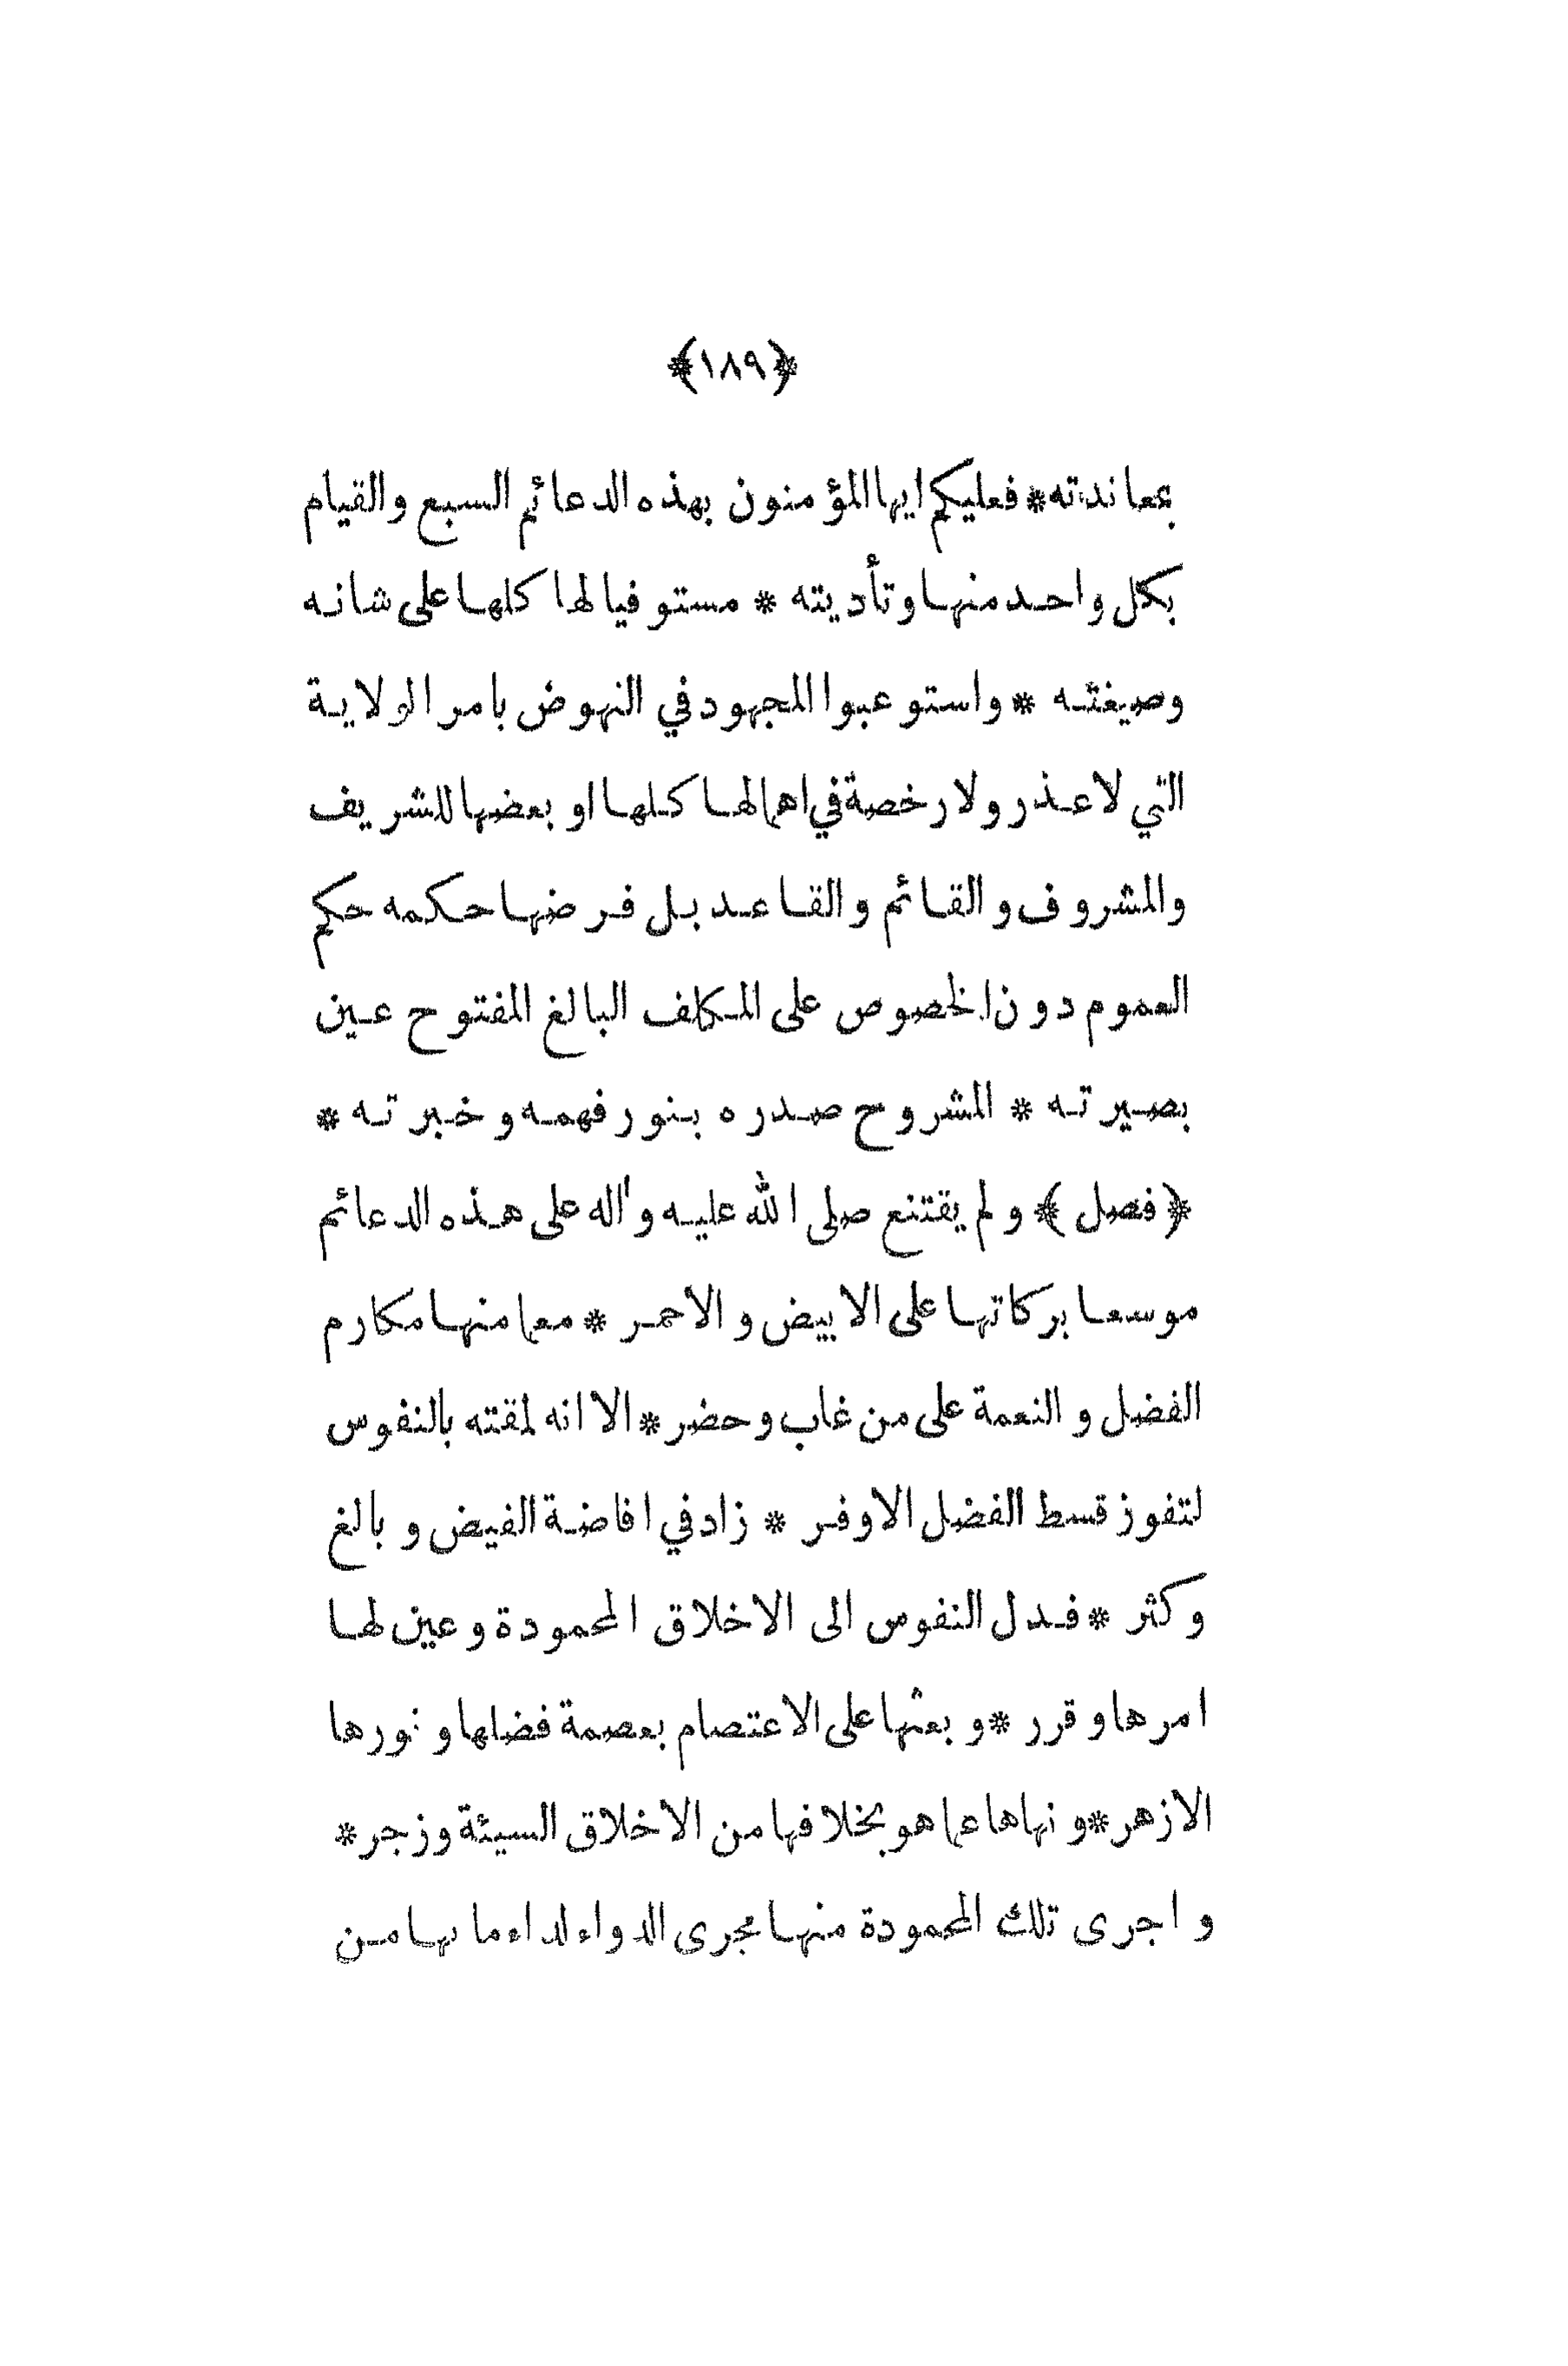 ﴿١٨٩﴾
بمعاندته * فعليكم ايها المؤمنون بهذه الدعائم السبع والقيام
بكل واحد منها وتأديته * مستوفيا لها كلها على شانه
وصيغته * واستوعبوا المجهود في النهوض بامر الولاية
التي لا عذر ولا رخصة في اهمالها كلها او بعضها للشريف
والمشروف والقائم والقاعد بل فرضها حكمه حكم
العموم دون الخصوص على المكلف البالغ المفتوح عين
بصيرته * المشروح صدره بنور فهمه وخبرته *
﴿فصل﴾ ولم يقتنع صلى الله عليه وآله على هذه الدعائم
موسعا بركاتها على الابيض والاحمر * معما منها مكارم
الفضل والنعمة على من غاب وحضر * الا انه لمقته بالنفوس
لتفوز قسط الفضل الاوفر * زاد في افاضة الفيض وبالغ
وكثر * فدل النفوس الى الاخلاق المحمودة وعين لها
امرها وقرر * وبعثها على الاعتصام بعصمة فضلها ونورها
الازهر * ونهاها عما هو بخلافها من الاخلاق السيئة وزجر *
واجرى تلك المحمودة منها مجرى الدواء لداء ما بها من